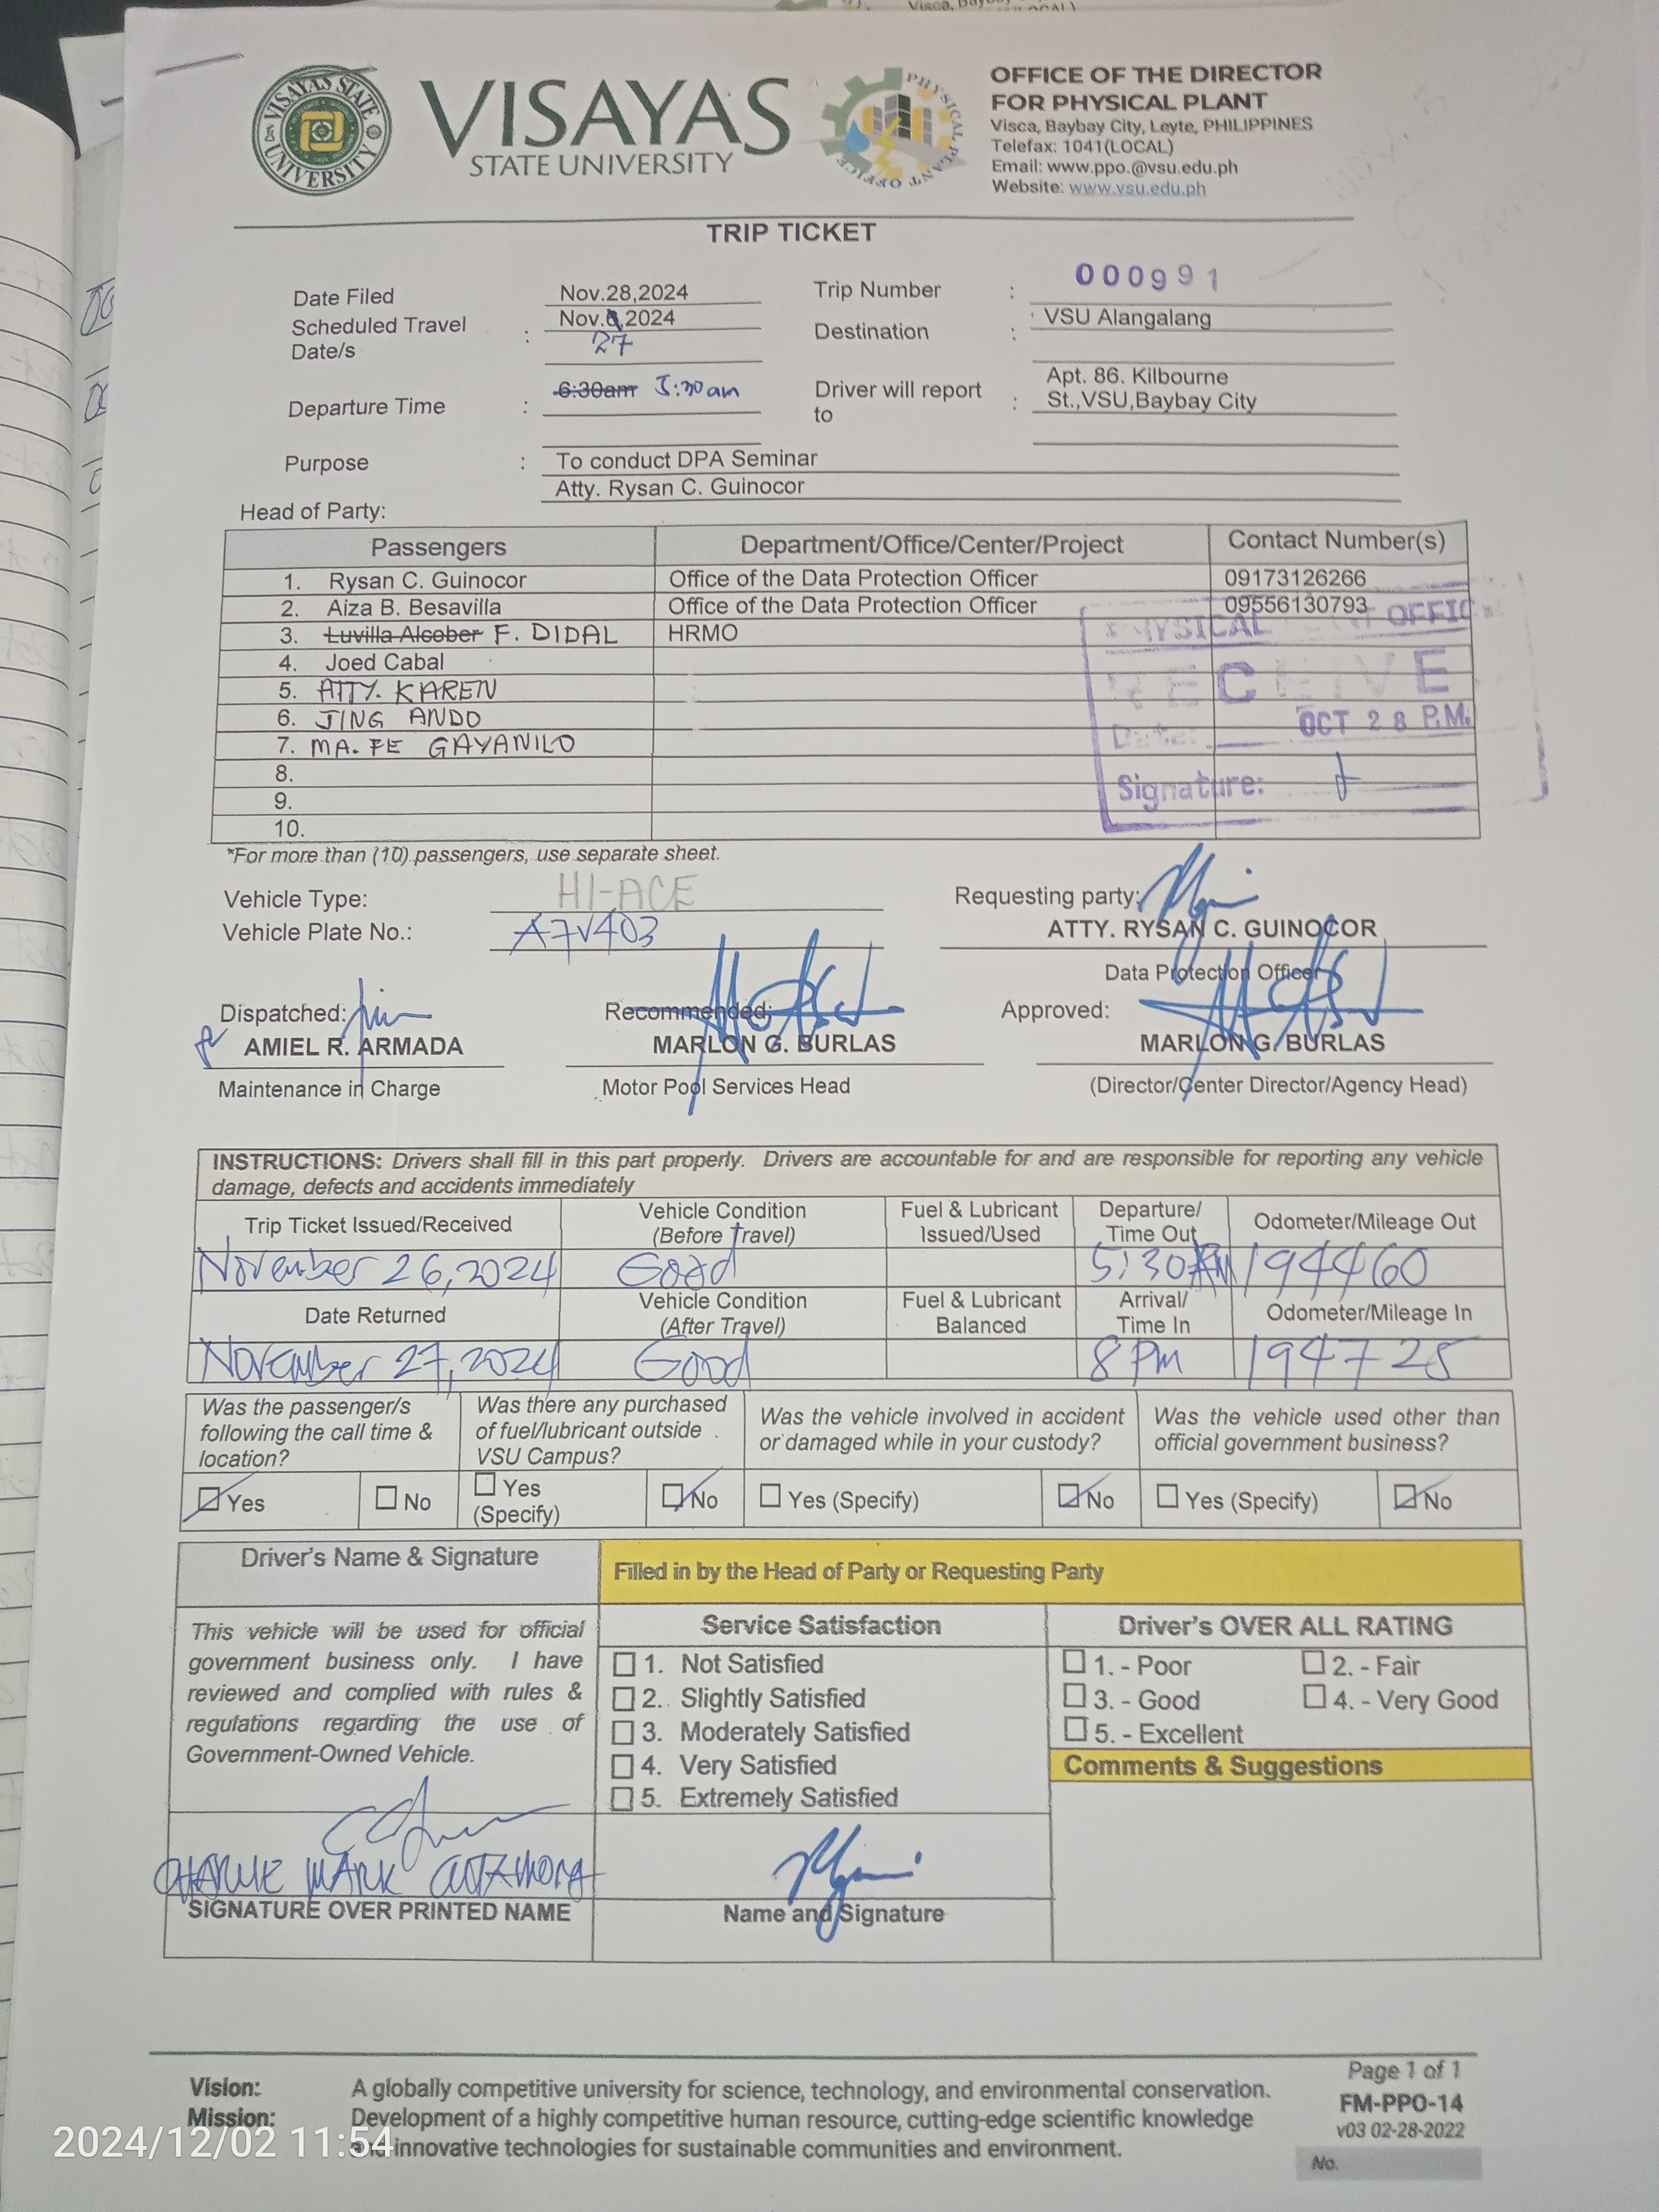 VISAYAS STATE UNIVERSITY
VISAYAS
STATE UNIVERSITY
PHYSICAL PLANT OFFICE
OFFICE OF THE DIRECTOR
FOR PHYSICAL PLANT
Visca, Baybay City, Leyte, PHILIPPINES
Telefax: 1041(LOCAL)
Email: www.ppo.@vsu.edu.ph
Website: www.vsu.edu.ph
TRIP TICKET
Date Filed Nov.28,2024 Trip Number : 000991
Scheduled Travel Date/s : Nov. ,2024 27 Destination : VSU Alangalang
Departure Time : 6:30am 5:30am Driver will report to : Apt. 86. Kilbourne St.,VSU,Baybay City
Purpose : To conduct DPA Seminar
Atty. Rysan C. Guinocor
Head of Party:
Passengers Department/Office/Center/Project Contact Number(s)
1. Rysan C. Guinocor Office of the Data Protection Officer 09173126266
2. Aiza B. Besavilla Office of the Data Protection Officer 09556130793
3. Luvilla Alcober F. DIDAL HRMO
4. Joed Cabal
5. ATTY. KAREN
6. JING ANDO
7. MA. FE GAYANILO
8.
9.
10.
PHYSICAL OFFIC
RECEIVE
Date: OCT 28 P.M.
Signature:
*For more than (10) passengers, use separate sheet.
Vehicle Type: HI-ACE Requesting party:
Vehicle Plate No.: A7V403 ATTY. RYSAN C. GUINOCOR
Data Protection Officer
Dispatched: Recommended: Approved:
AMIEL R. ARMADA MARLON G. BURLAS MARLON G. BURLAS
Maintenance in Charge Motor Pool Services Head (Director/Center Director/Agency Head)
INSTRUCTIONS: Drivers shall fill in this part properly. Drivers are accountable for and are responsible for reporting any vehicle
damage, defects and accidents immediately
Trip Ticket Issued/Received Vehicle Condition (Before Travel) Fuel & Lubricant Issued/Used Departure/ Time Out Odometer/Mileage Out
November 26,2024 Good 5:30AM 194460
Date Returned Vehicle Condition (After Travel) Fuel & Lubricant Balanced Arrival/ Time In Odometer/Mileage In
November 27,2024 Good 8 Pm 194725
Was the passenger/s following the call time & location? Was there any purchased of fuel/lubricant outside VSU Campus? Was the vehicle involved in accident or damaged while in your custody? Was the vehicle used other than official government business?
Yes No Yes (Specify) No Yes (Specify) No Yes (Specify) No
Driver's Name & Signature
Filled in by the Head of Party or Requesting Party
This vehicle will be used for official
government business only. I have
reviewed and complied with rules &
regulations regarding the use of
Government-Owned Vehicle.
Service Satisfaction
1. Not Satisfied
2. Slightly Satisfied
3. Moderately Satisfied
4. Very Satisfied
5. Extremely Satisfied
Driver's OVER ALL RATING
1. - Poor 2. - Fair
3. - Good 4. - Very Good
5. - Excellent
Comments & Suggestions
MARK
SIGNATURE OVER PRINTED NAME
Name and Signature
Page 1 of 1
FM-PPO-14
v03 02-28-2022
No.
Vision: A globally competitive university for science, technology, and environmental conservation.
Mission: Development of a highly competitive human resource, cutting-edge scientific knowledge
and innovative technologies for sustainable communities and environment.
2024/12/02 11:54